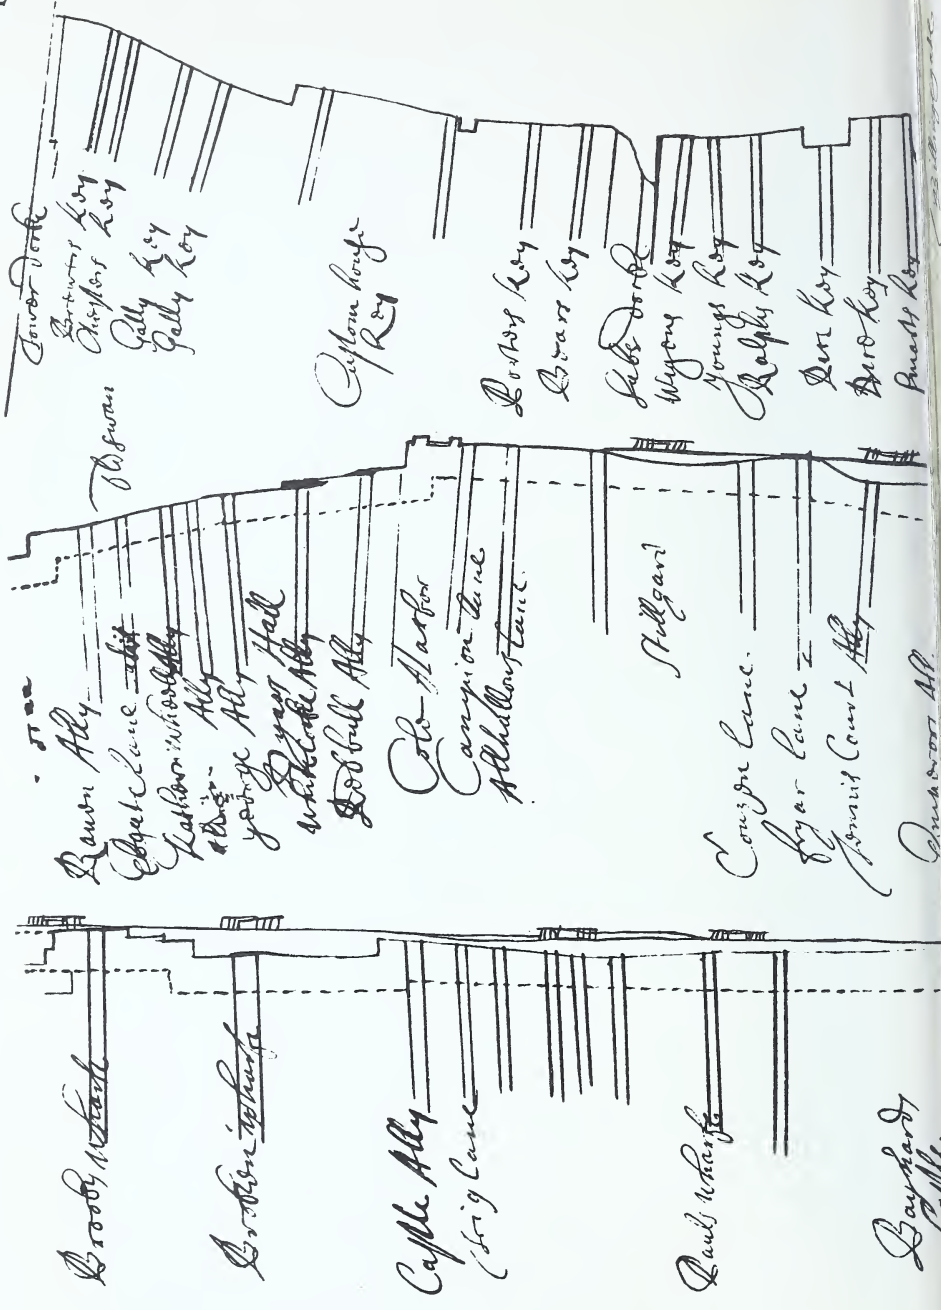 Tower Docke
Brewers Key
Chesters Key
Gally Key
Gally Key
Custom house
Key
Porters Key
Beare Key
Sabs Docke
Wigons Key
Youngs Key
Ralphs Key
Dice Key
Smarts Key
Old swan
Raven Ally
Ebgate lane
Ally
george Ally
Dyars Hall
Whitecocke Ally
Redbull Ally
Cole Harbor
Campion lane
Allhallows lane.
Stillyard
Couzen lane.
fryar lane
Tennis Court Ally
Brooks Wharfe
Broken wharfe
Castle Ally
Trig lane
Pauls wharfe
Baynards